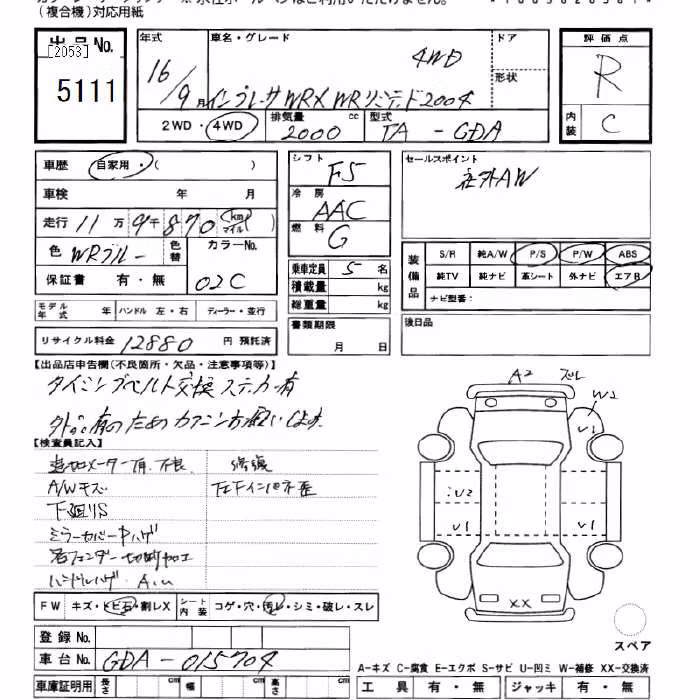 (複合機)対応用紙
出品No.
[2053]
5111
年式 車名・グレード ドア
16 4WD
形状
9月 インプレッサ WRX WRリミテッド2004
2WD・4WD 排気量 cc 型式
2000 TA - GDA
評価点
R
内装 C
車歴 自家用・( )
車検 年 月
走行 11万9千870 km マイル
色 WRブルー 色替 カラーNo.
保証書 有・無 02C
シフト F5
冷房 AAC
燃料 G
乗車定員 5 名
積載量 kg
総重量 kg
セールスポイント
社外AW
装備品 S/R 純A/W P/S P/W ABS
純TV 純ナビ 革シート 外ナビ エアB
ナビ型番:
モデル年式 年 ハンドル 左・右 ディーラー・並行
書類期限
月 日
後日品
リサイクル料金 12880 円 預託済
【出品店申告欄(不良箇所・欠品・注意事項等)】
タイミングベルト交換 ステッカー有
【検査員記入】
A/Wキズ
下廻りS
ミラーカバー中ハゲ
右フェンダー切断加工
A2 ズレ
W2
U1
U2
U1 U1
XX
FW キズ・トビ石・割レX シート内装 コゲ・穴・汚レ・シミ・破レ・スレ
登録No.
車台No. GDA-015704
車庫証明用 長さ cm 幅 cm 高さ cm
スペア
A-キズ C-腐食 E-エクボ S-サビ U-凹ミ W-補修 XX-交換済
工具 有・無 ジャッキ 有・無